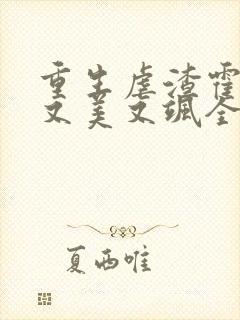 重生虐渣霍
又美又飒全
夏西唯